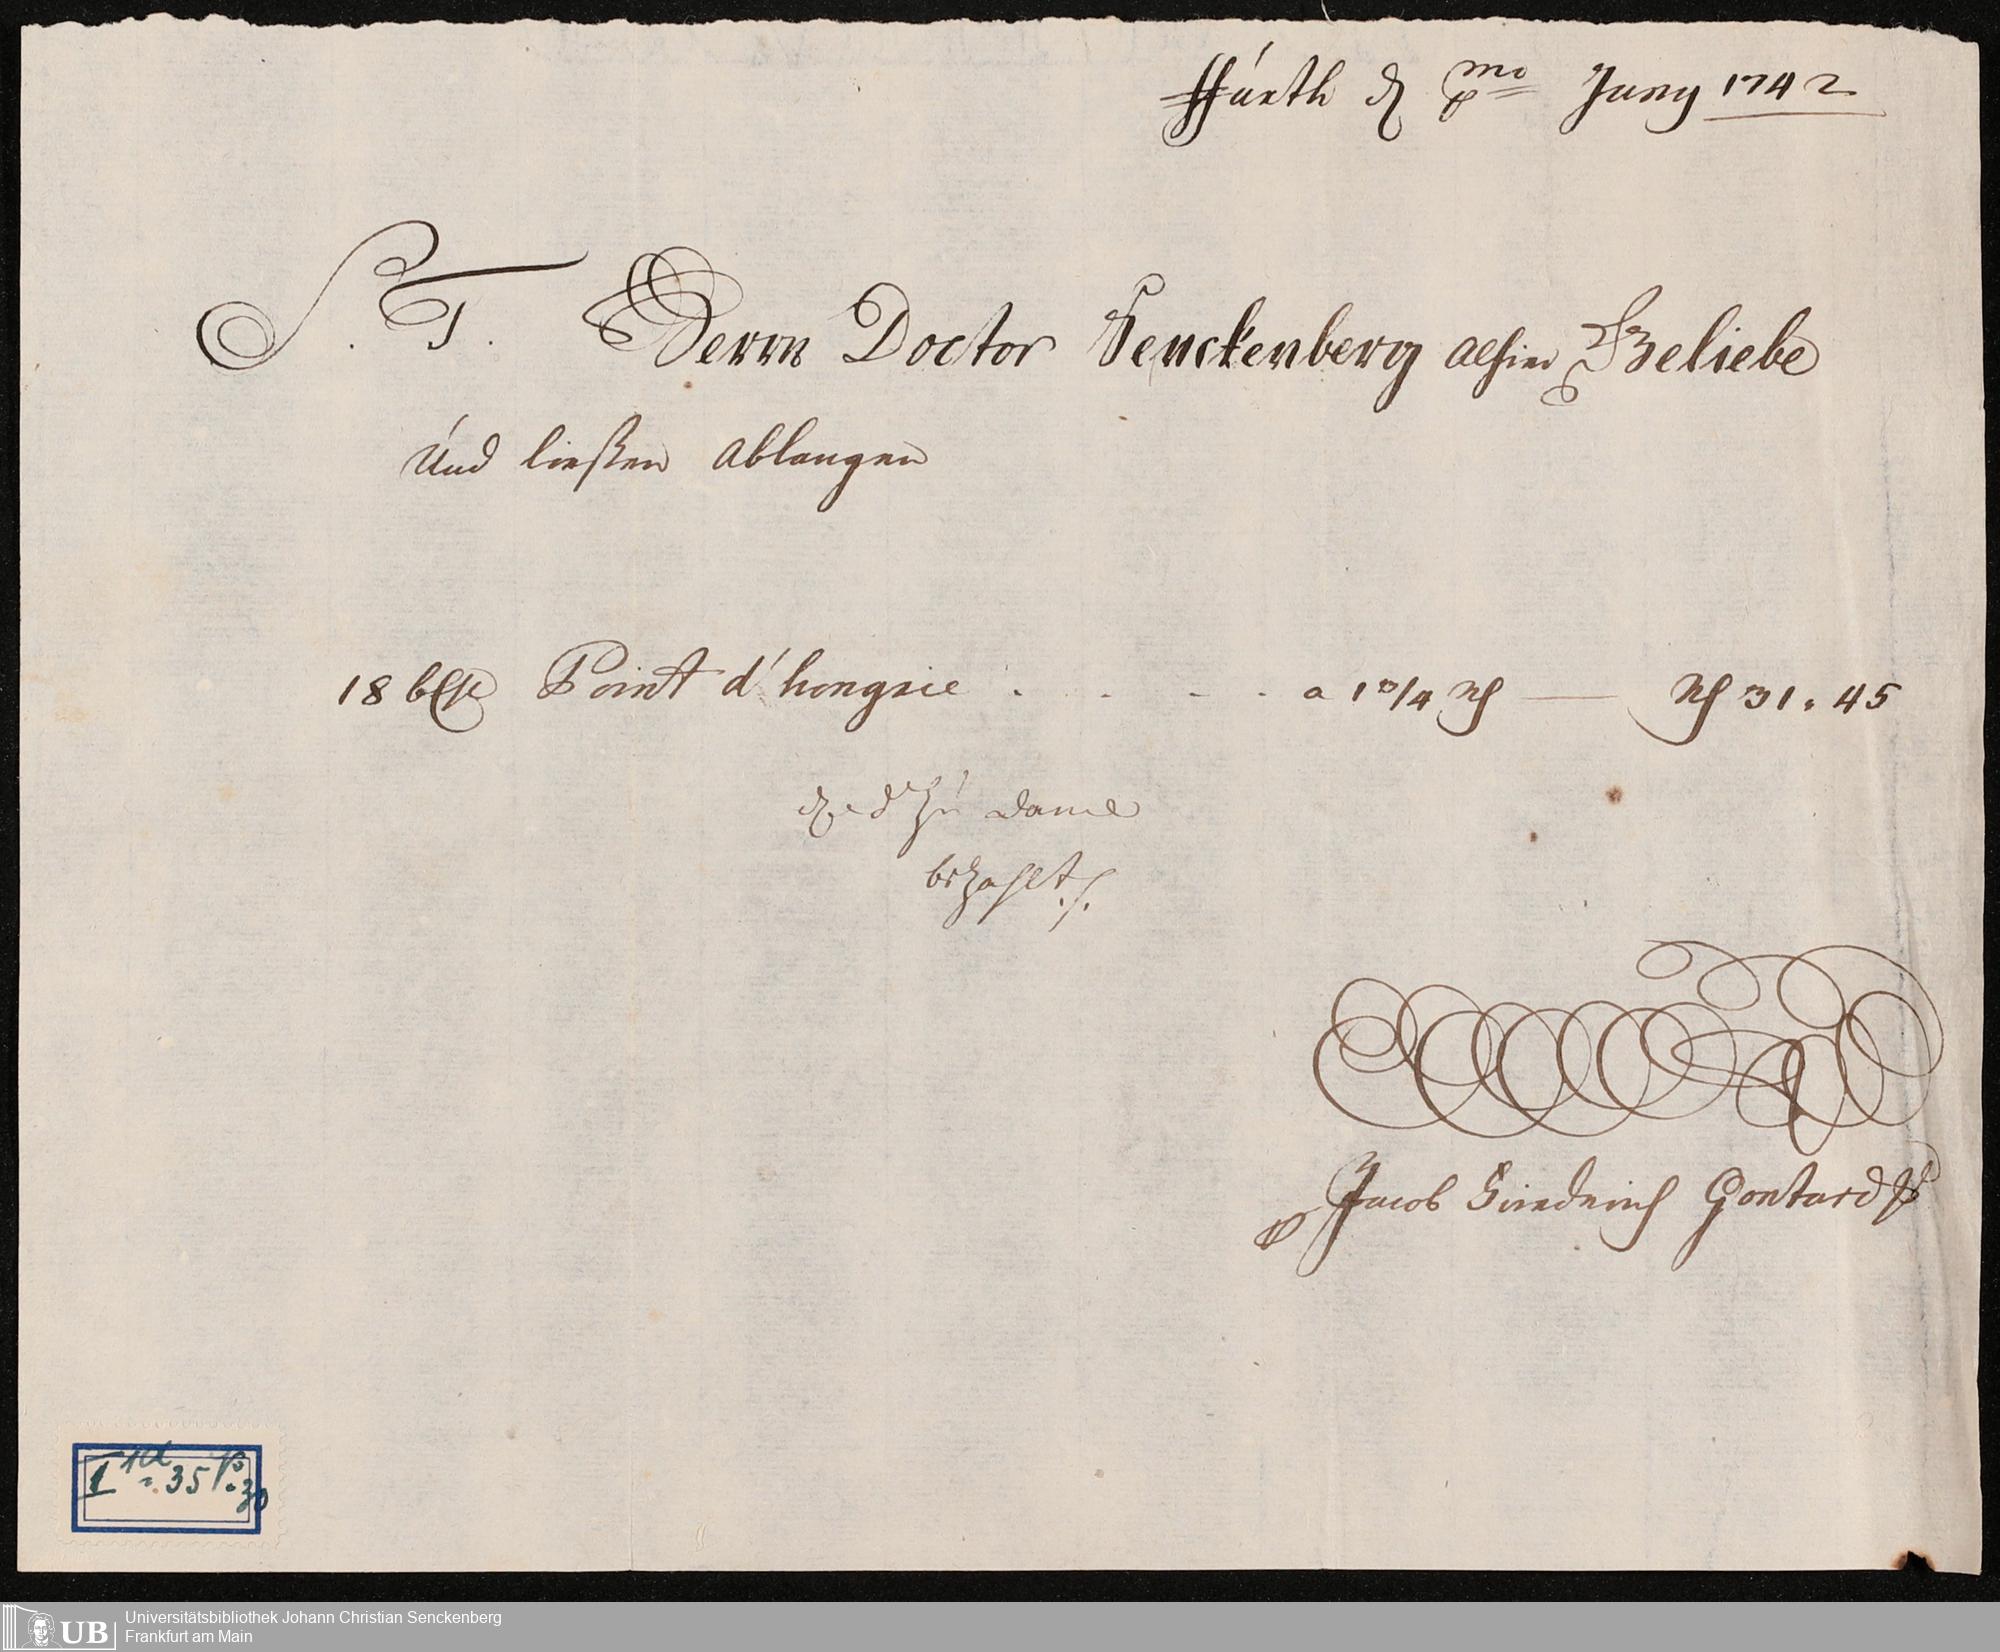 ffurth d. mo Juny 1742
S. T. Herrn Doctor Senckenberg alhier Beliebe
Und ließen Ablangen
18 Point d'hongrie . . . . . a 1 3/4 Rf — Rf 31. 45
zu danck
bezahlt
Jacob Friedrich Gontard
I 35 30
UB
Universitätsbibliothek Johann Christian Senckenberg
Frankfurt am Main